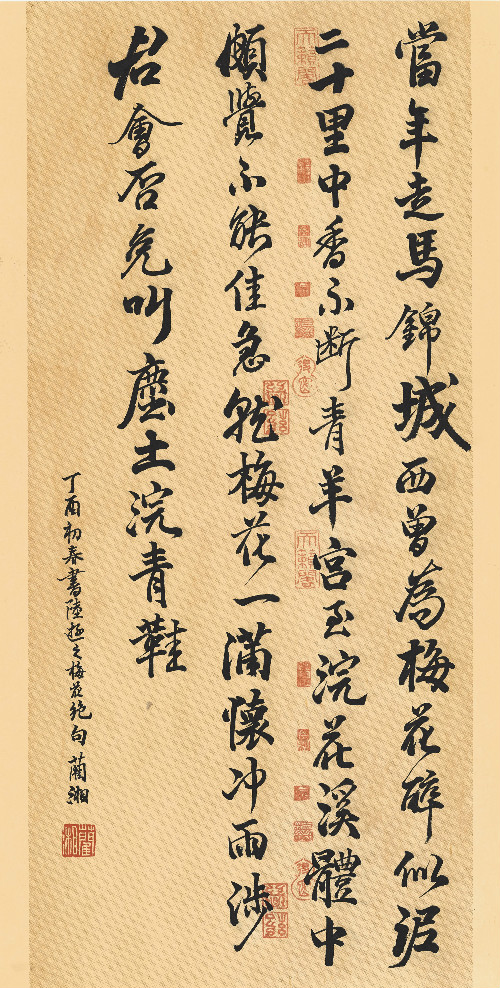 當年走馬錦城西曾為梅花醉似泥
二十里中香不断青羊宮至浣花溪體中
頗覺不能佳急就梅花一滿懷冲雨涉
君會否免叫塵土浣青鞋
丁酉初春書陸游之梅花绝句 蘭湘